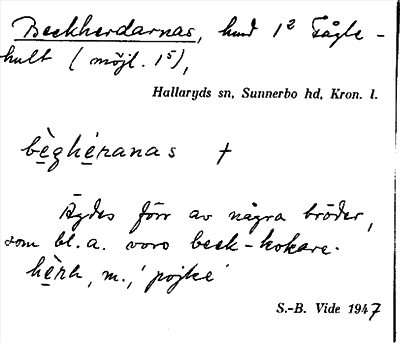 Beckherdarnas, hmd 1² Fågle-
hult (möjl. 1⁵),
Hallaryds sn, Sunnerbo hd, Kron. l.
bèghéranas †
Ägdes förr av några bröder,
som bl.a. voro beck-kokare.
hèrh, m., 'pojke'
S.-B. Vide 1947